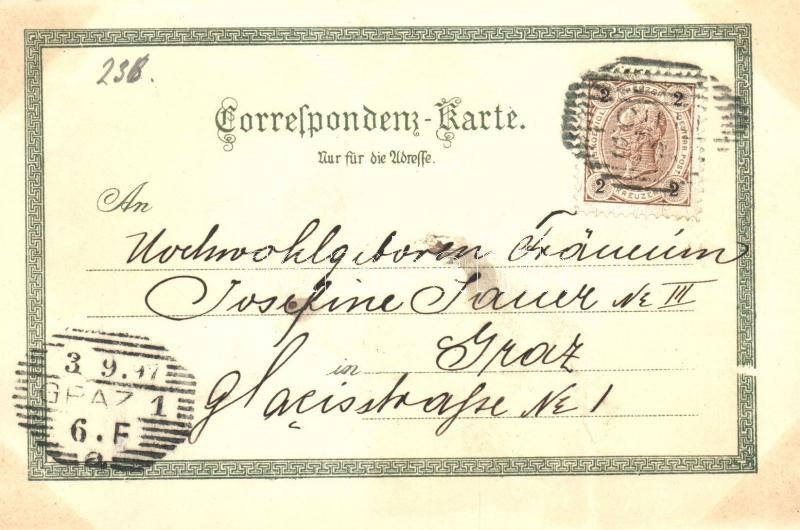 238.
2 KREUZER 2
2 KREUZER 2
Correſpondenz-Karte.
Nur für die Adreſſe.
An
Hochwohlgeboren Fräulein
Josefine Sauer No III
in Graz
Glacisstraße No 1
3 9.97
GRAZ 1
6.F
a